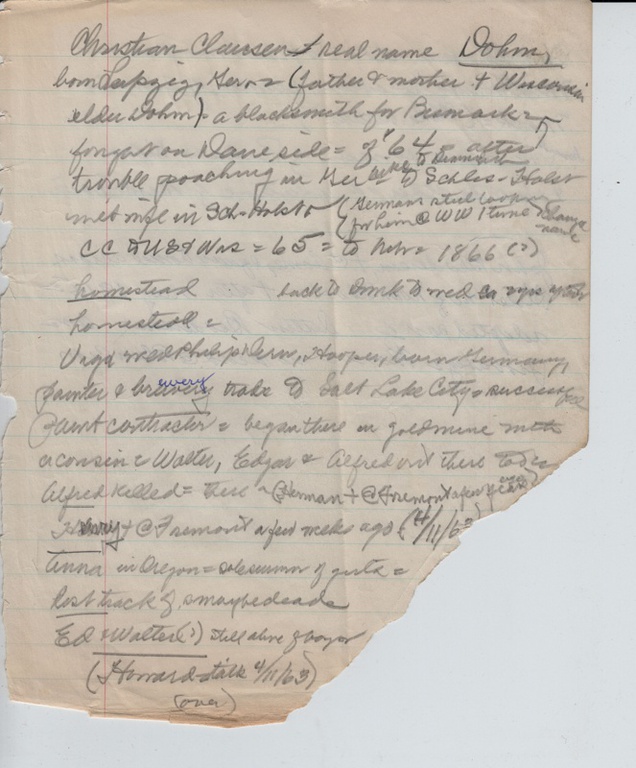 Christian Claussen real name Dohm,
born Leipzig, Ger = (father & mother + Wisconsin
elder Dohm) = a blacksmith for Bismark =
fought on Dane side = of "64 = after
trouble poaching in Ger to Schles-Holst
met wife in Sch-Holst (Germans still look
for him @ WW 1 time change
name
C C to US & Wis = 65 = to Nebr = 1866 (?)
homestead back to to wed
homestead =
wed Philip Dern, Hooper, born Germany,
painter & brewery trade to Salt Lake City = successful
every
(paint contractor = began there in goldmine with
a cousin = Walter, Edgar & Alfred out there
Alfred killed = there = (Herman + @ Fremont a few years
ago
Henry + @ Fremont a few weeks ago (4/11/63)
Anna in Oregon = of girls =
lost track of, maybe dead
Ed & Walter (?) still alive of boys
(Howard talk 4/11/63)
(over)